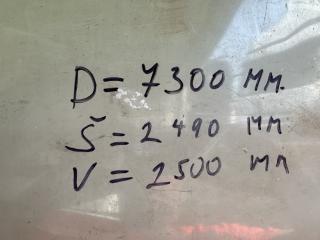 D = 7300 мм.
Š = 2490 мм
V = 2500 мм